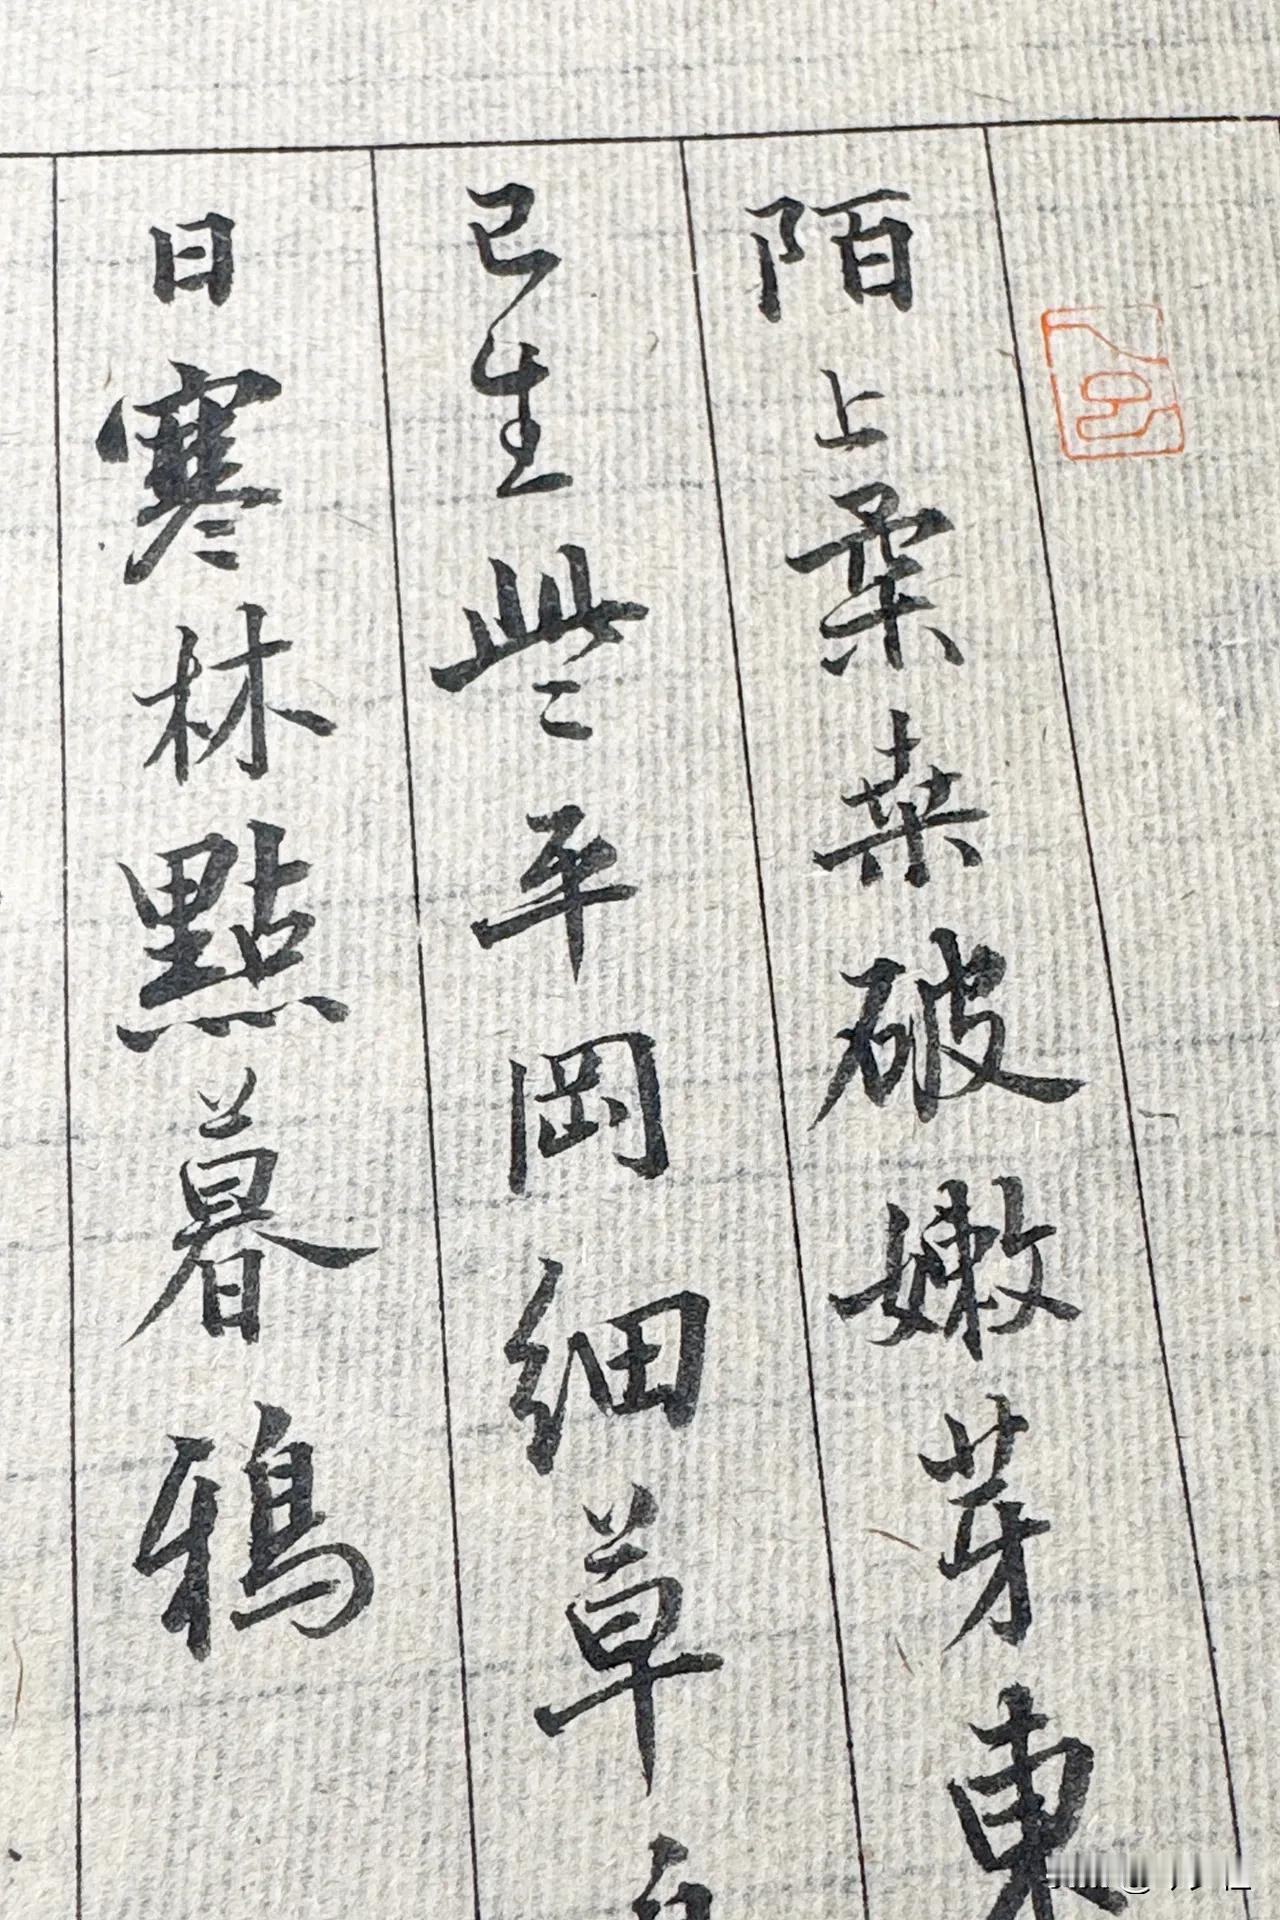 陌上柔桑破嫩芽東
已生些平岡細草
日寒林點暮鴉